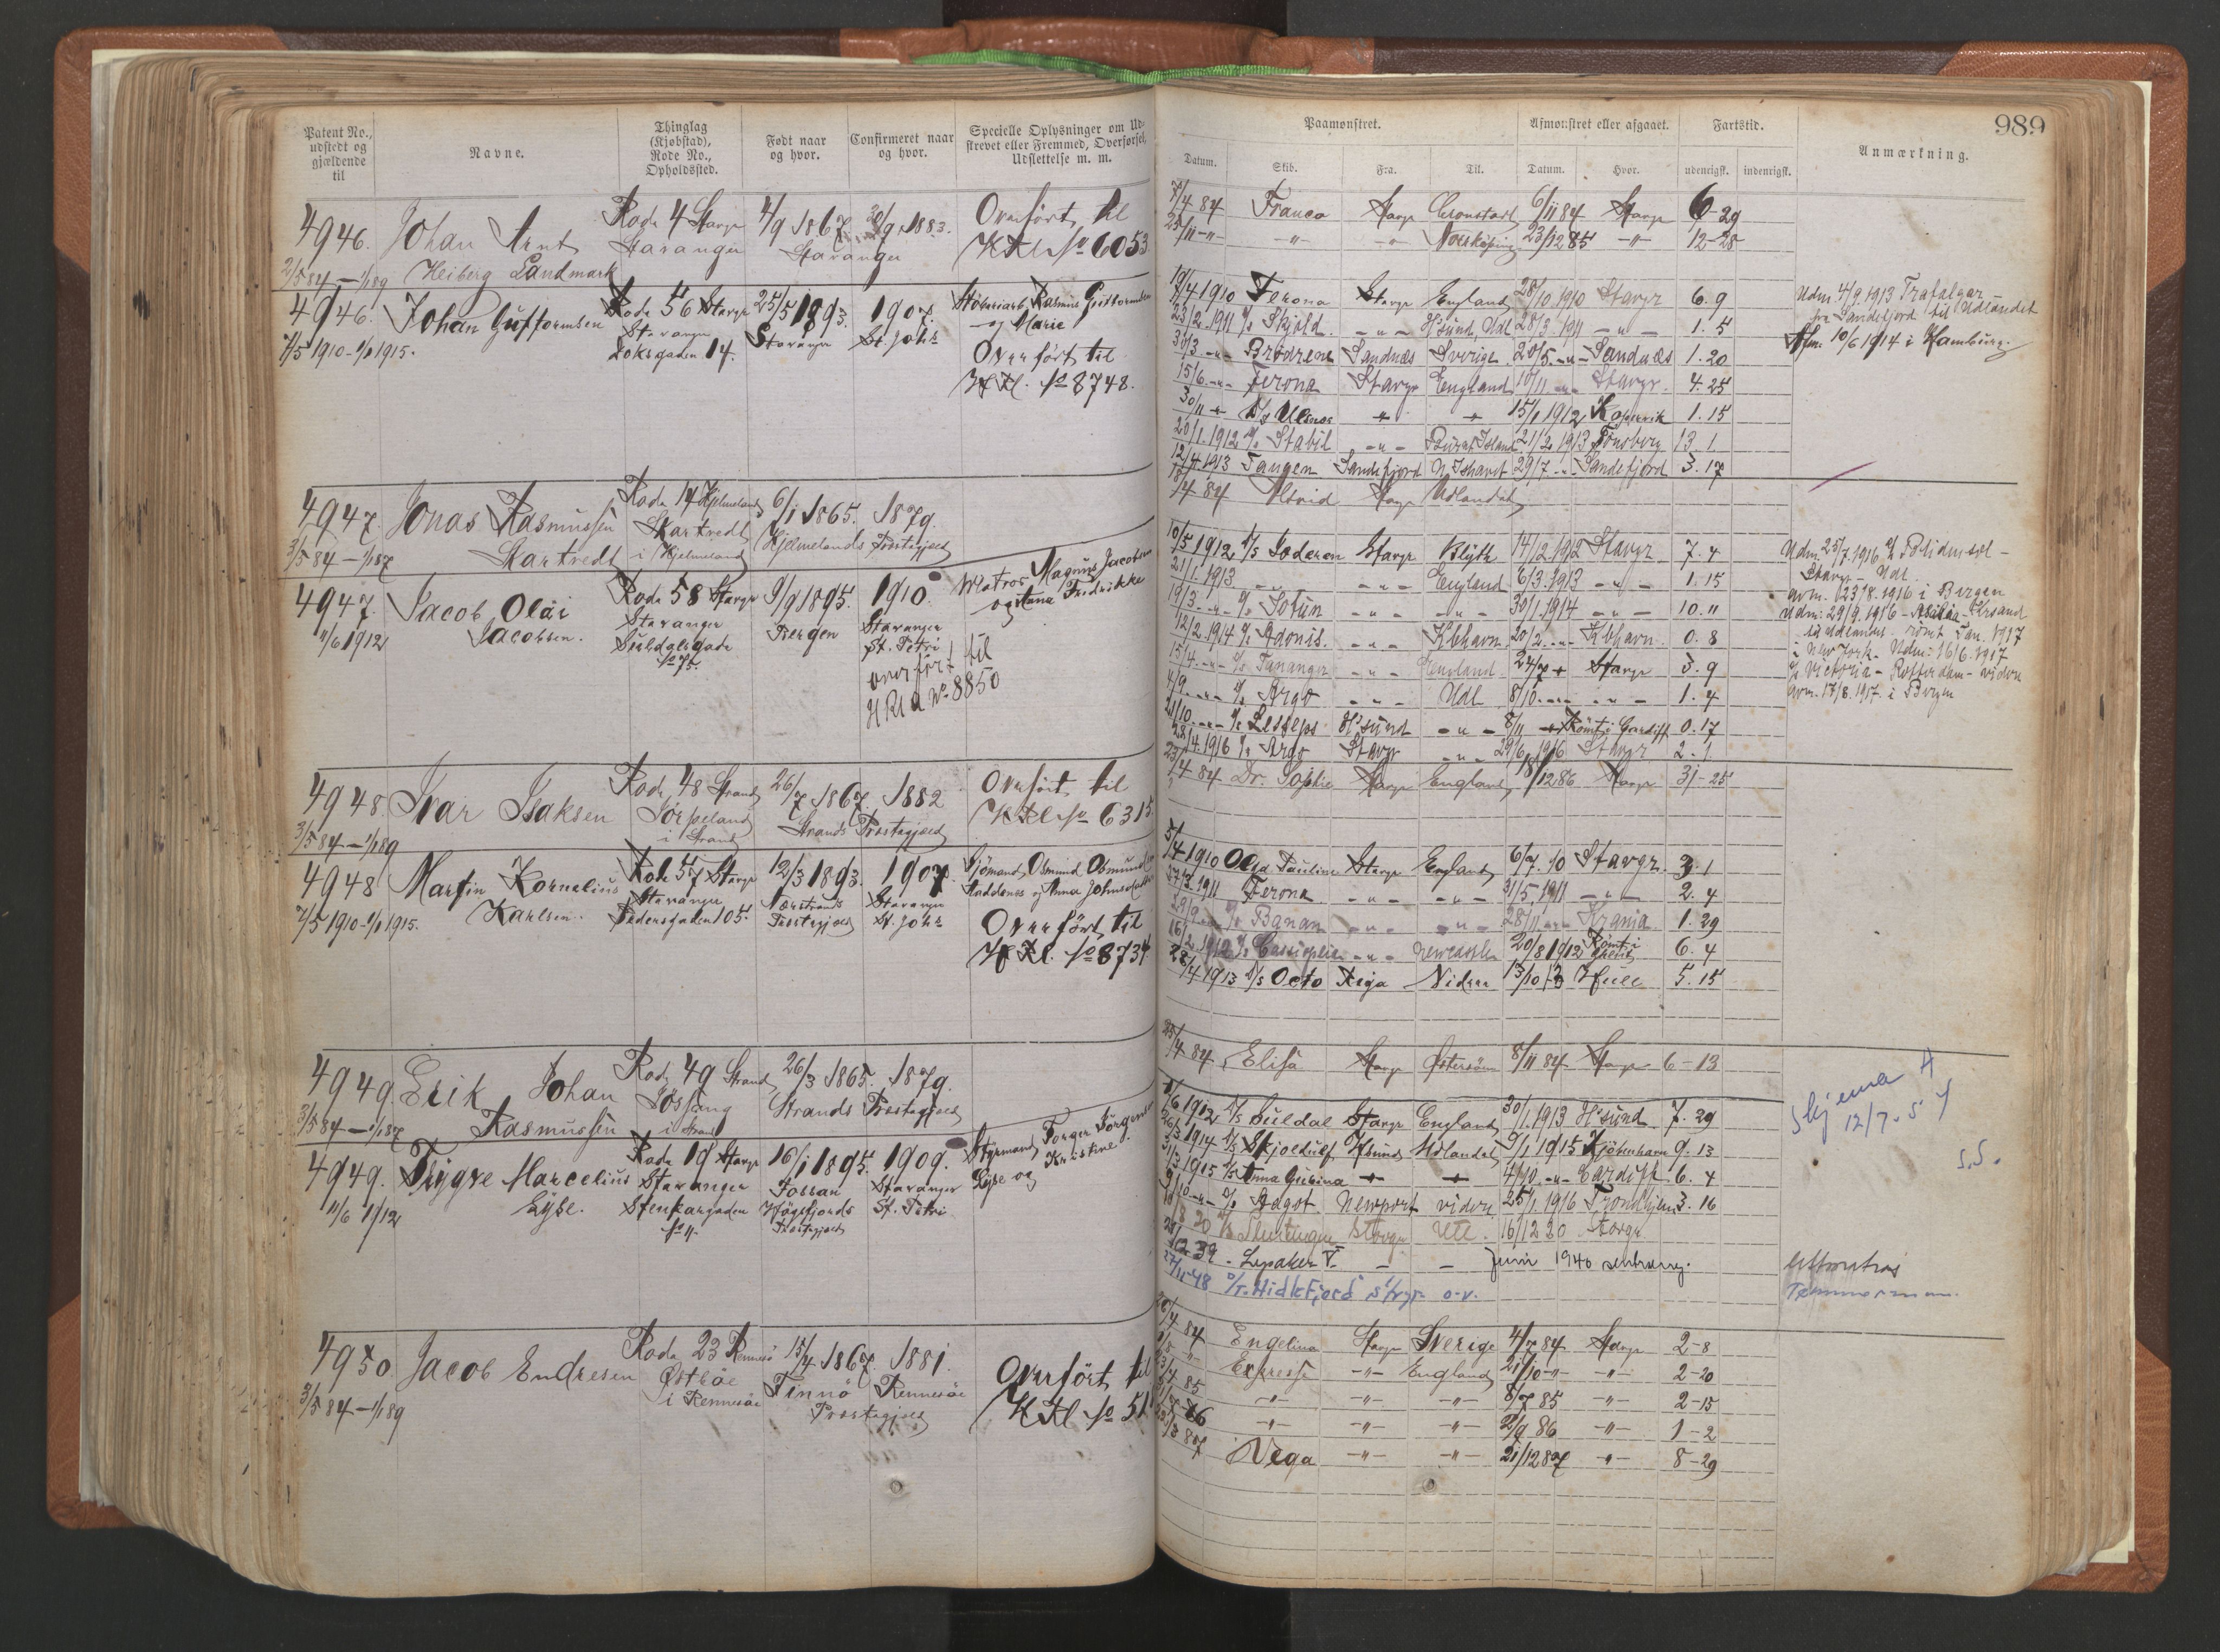 989
Patent No., udstedt og gjældende til
Navne.
Thinglag (Kjøbstad), Rode No., Opholdssted.
Født naar og hvor.
Confirmeret naar og hvor.
Specielle Oplysninger om Udstrevet eller Fremmed, Overførsel, Udslettelse m. m.
Paamønstret.
Datum.
Skib.
Fra.
Til.
Afmønstret eller afgaaet.
Datum.
Hvor.
Fartstid.
udenrigsk.
indenrigsk.
Anmærkning.
4946. Johan Arnt Rode 4 Stavgr 4/9 1867. 30/9 1883. Overført til
2/5 84 – 1/1 89 Heiberg Landmark Stavanger Stavanger No 6053
7/4 84 Franca Stavgr Cronstadt 6/11 84 Stavgr 6-29
25/11 -"- -"- -"- Norrköping 23/12 85 -"- 12-28
4946. Johan Guttormsen Rode 56 Stavgr 25/5 1893. 1907. Rasmus Guttormsen
7/5 1910 – 1/1 1915. Stavanger Stavanger St. Joh. og Marie
14. Overført til
No 8748.
19/4 1910 Ferona Stavgr England 28/10 1910 Stavgr 6. 9
23/2. 1911 Skjold. -"- H'sund, Udl 28/3. 1911 -"- 1. 5
30/3 -"- Brødrene Sandnæs Sverige 20/5 -"- Sandnæs 1. 20
15/6 -"- Ferona Stavgr England 10/11 -"- Stavgr. 4. 25
30/11 Ulsnes 15/1 1912 Kopervik 1. 15
20/1. 1912 Stabil -"- 21/2. 1913 Tønsberg 13. 1
12/4 1913 Tangen Sandefjord N. Ishavet 29/7 -"- Sandefjord 3. 17
Udm. 4/9. 1913 Trafalgar –
fra Sandefjord til Udlandet
Afm. 10/6 1914 i Hamburg.
4947. Jonas Rasmussen Rode 14 Hjelmeland 6/1 1865. 1879.
3/5 84 – 1/1 87 Skartvedt Skartvedt i Hjelmeland Hjelmelands Præstegjæld
18/4 84 Astrid Stavgr Udlandet
4947. Jacob Olai Rode 58 Stavgr 9/9 1895. 1910. Matros Magnus Jacobsen
11/6 1912 Jacobsen. Stavanger Bergen Stavanger og Fredrikke
Suldalsgade No 75. St. Petri
overført til
No 8850
10/5 1912 Soderen Stavgr Blyth 14/12. 1912 Stavgr 7. 4
21/1. 1913 -"- -"- England 6/3. 1913 -"- 1. 15
19/3. -"- Jotun -"- -"- 30/1. 1914 -"- 10. 11
12/2. 1914 Adonis. -"- Kbhavn 20/2. -"- Kbhavn. 0. 8
15/4. -"- Tananger -"- England 24/7 Stavgr 3. 9
4/9. -"- Argo -"- Udl 8/10. -"- -"- 1. 4
21/10. -"- Lesseps H'sund -"- 8/11 Rømt i Cardiff 0. 17
28/4. 1916 Argo Stavgr -"- 29/6 1916 Stavgr 2. 1
Udm. 25/7. 1916
Stavgr – Udl.
avm. 23/8. 1916 i Bergen
Udm: 29/9. 1916 – Krsand
rømt Jan. 1917
i New York. Udm: 16/6. 1917
Victoria – Rotterdam – videre
avm. 17/8. 1917. i Bergen
4948. Ivar Isaksen Rode 48 Strand 26/7 1867. 1882 Overført til
3/5 84 – 1/1 89 Jørpeland i Strand Strands Præstegjæld No 6315
23/4 84 Dr. Sophie Stavgr England 18/12 86 Stavgr 31-25
4948 Martin Kornelius Rode 57 Stavgr 12/3 1893. 1907. Sjømand, Osmund Osmundsen
7/5 1910 – 1/1 1915. Karlsen. Stavanger Nærstrands Stavanger
Pedersgaden 105. Præstegjæld St. Joh. Overført til
No 8734
5/4 1910 Olga Pauline Stavgr England 6/7. 10 Stavgr. 3. 1
27/3. 1911 Ferona -"- -"- 31/5. 1911 -"- 2. 4
29/9 Banan -"- -"- 28/11 -"- Krania 1. 29
16/2. 1912 Cassiopeia -"- Newcastle 20/8 1912 Rømt i Ghent 6. 4
28/4 1913 Octo Riga Videre 13/10 13 Hull 5. 15
4949. Erik Johan Rode 49 Strand 26/3 1865. 1879.
3/5 84 – 1/1 87 Rasmussen Jøssang i Strand Strands Præstegjæld
25/4 84 Elisa Stavgr Østersøen 8/11 84 Stavgr 6-13
4949. Trygve Marcelius Rode 19 Stavgr 16/1 1895. 1909. Styrmand, Torger Torgersen
11/6 1912 Lyse. Stavanger Fossan Stavanger Lyse og Kristine.
Stenkargaden Høgsfjords Præstegjæld St. Petri
11/6 1912 Suldal Stavgr England 30/1. 1913 H'sund 7. 29
1914 Skjoldulf H'sund Udlandet 9/1 1915 Kjøbenhavn 9. 13
1915 Anna Gurina 4/10. -"- Cardiff 6. 4
9/10 -"- Dagot Newport videre 25/1. 1916 Trondhjem 3. 16
8 20 Stavgr Utl. 16/12 20 Stavgr
39 – Lysaker V – – Juni 1940
27/11-48 Hidlefjord Stvgr o.v.
Skjema A
12/7-54
S.S.
4950. Jacob Endresen Rode 23 Rennesø 15/4 1867. 1881. Overført til
3/5 84 – 1/1 89 Østbøe i Rennesøe Finnø Rennesøe Præstegjæld No 51
26/4 84 Engelina Stavgr Sverige 4/7 84 Stavgr 2-8
Expresse -"- England 21/10 -"- -"- 2-20
85 -"- -"- -"- 8/7 85 -"- 2-15
86 -"- -"- -"- 2/9 86 -"- 1-2
3 87 Vega -"- -"- 21/12 87 -"- 8-29